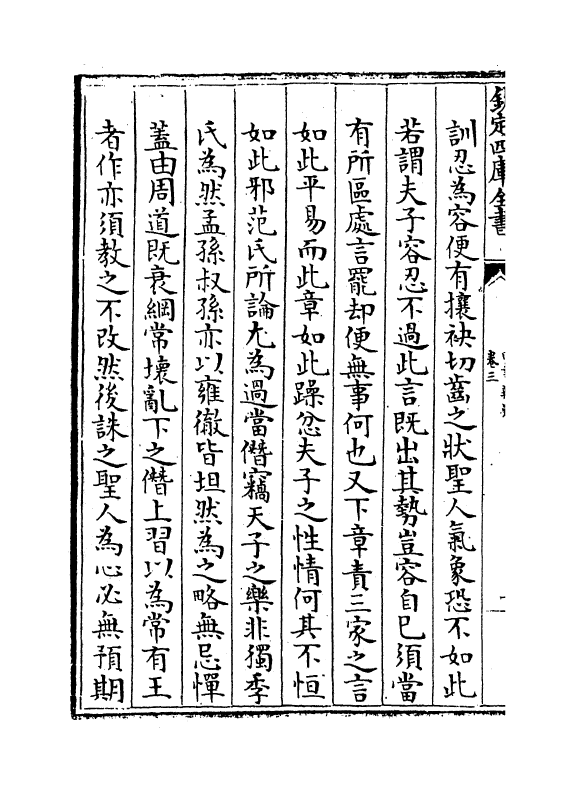 欽定四庫全書
卷三
訓忍為容便有攘袂切齒之狀聖人氣象恐不如此
若謂夫子容忍不過此言既出其勢豈容自已須當
有所區處言罷却便無事何也又下章責三家之言
如此平易而此章如此躁忿夫子之性情何其不恒
如此邪范氏所論尤為過當僭竊天子之樂非獨季
氏為然孟孫叔孫亦以雍徹皆坦然為之略無忌憚
蓋由周道既衰綱常壞亂下之僭上習以為常有王
者作亦須教之不改然後誅之聖人為心必無預期